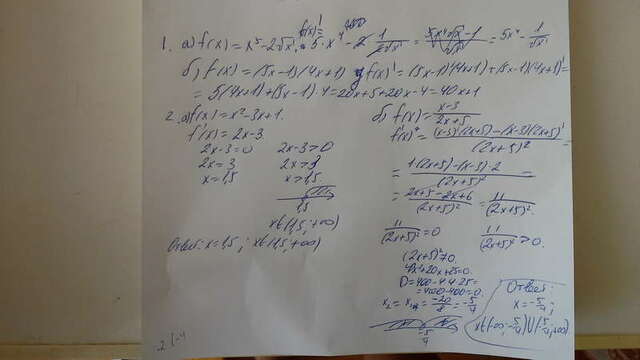 1. а) f(x) = x⁵ - 2√x; f(x)' = 5·x⁴ - 2·1/(2√x) = = 5x⁴ - 1/√x
б) f(x) = (5x-1)(4x+1) f(x)' = (5x-1)'(4x+1) + (5x-1)(4x+1)' =
= 5(4x+1) + (5x-1)·4 = 20x+5+20x-4 = 40x+1
2. а) f(x) = x²-3x+1.
f'(x) = 2x-3
2x-3=0 2x-3>0
2x=3 2x>3
x=1,5 x>1,5.
1,5
x∈(1,5; +∞)
Ответ: x=1,5; x∈(1,5; +∞)
б) f(x) = (x-3)/(2x+5)
f'(x) = ((x-3)'(2x+5) - (x-3)(2x+5)')/(2x+5)² =
= (1(2x+5) - (x-3)·2)/(2x+5)² =
= (2x+5-2x+6)/(2x+5)² = 11/(2x+5)².
11/(2x+5)² = 0 11/(2x+5)² > 0.
(2x+5)² ≠ 0.
4x²+20x+25=0.
D=400-4·4·25=
=400-400=0.
x₂ = x₁ = -20/8 = -5/4
-5/4
Ответ:
x=-5/4;
x∈(-∞; -5/4)U(-5/4; +∞)